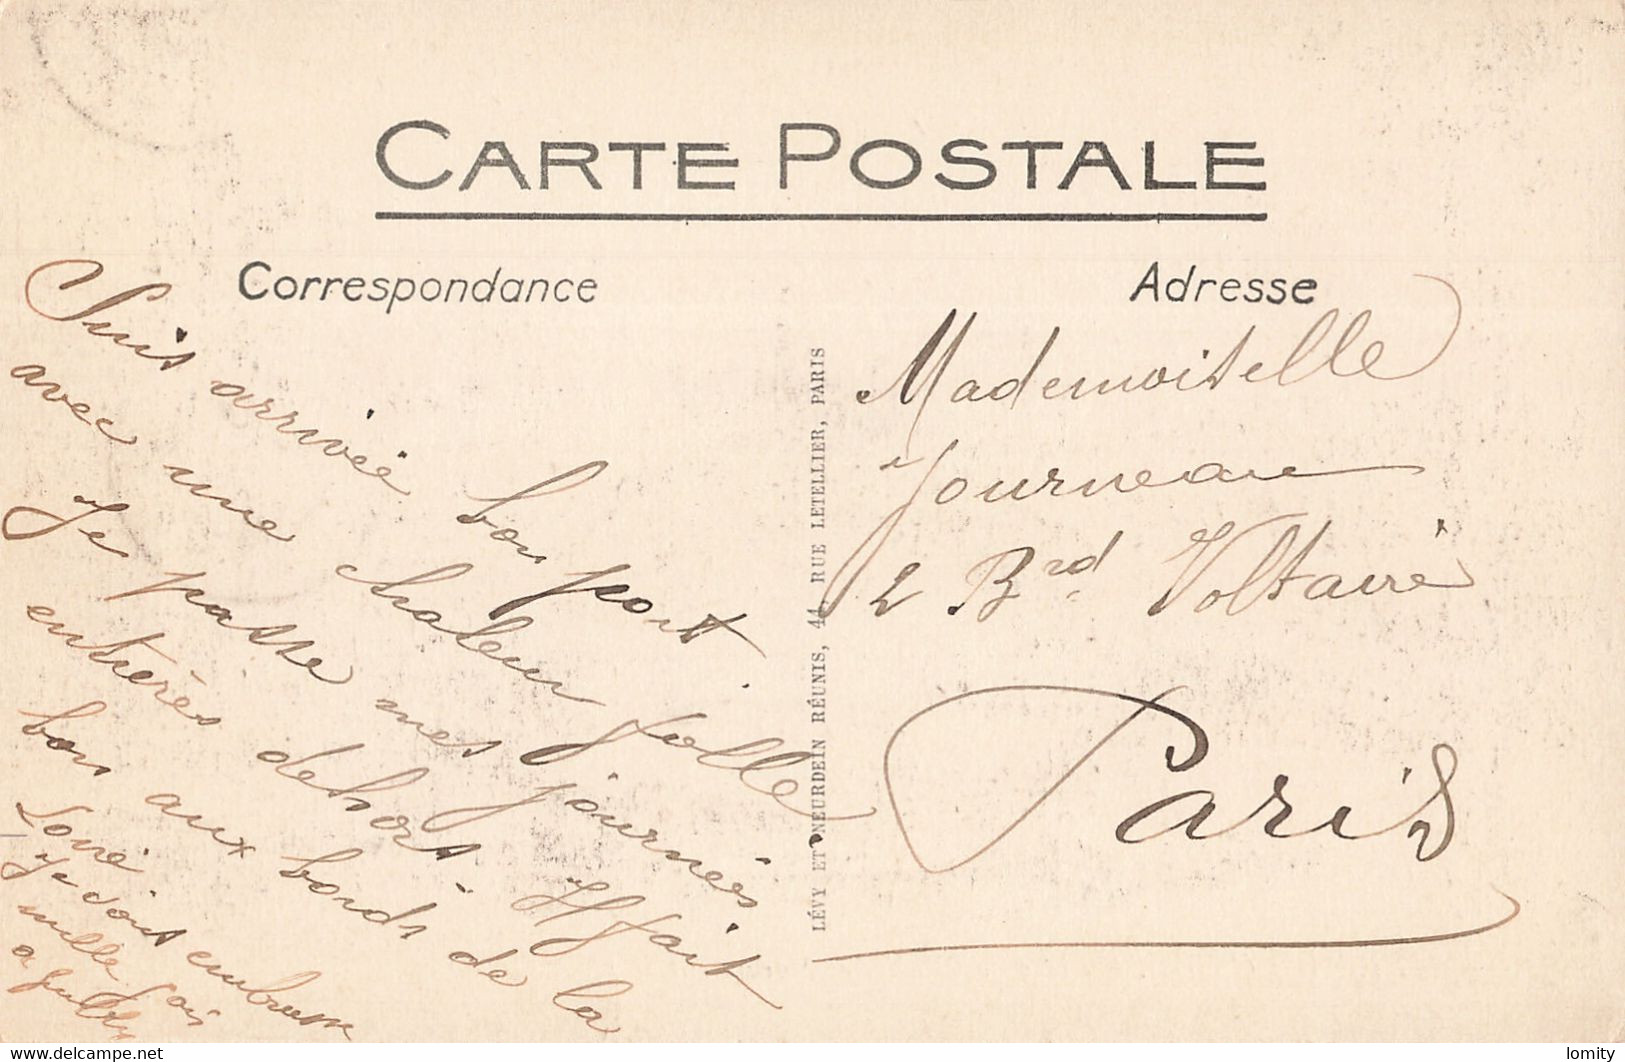 CARTE POSTALE
Correspondance
Adresse
Suis arrivée bon port
avec une chaleur folle
Je passe mes journées
entières dehors. Il fait
bon aux bords de la
Loire
Je vous embrasse
mille fois
LÉVY ET NEURDEIN RÉUNIS, 44, RUE LETELLIER, PARIS
Mademoiselle
Journeau
2 Brd. Voltaire
Paris
www.delcampe.net
lomity